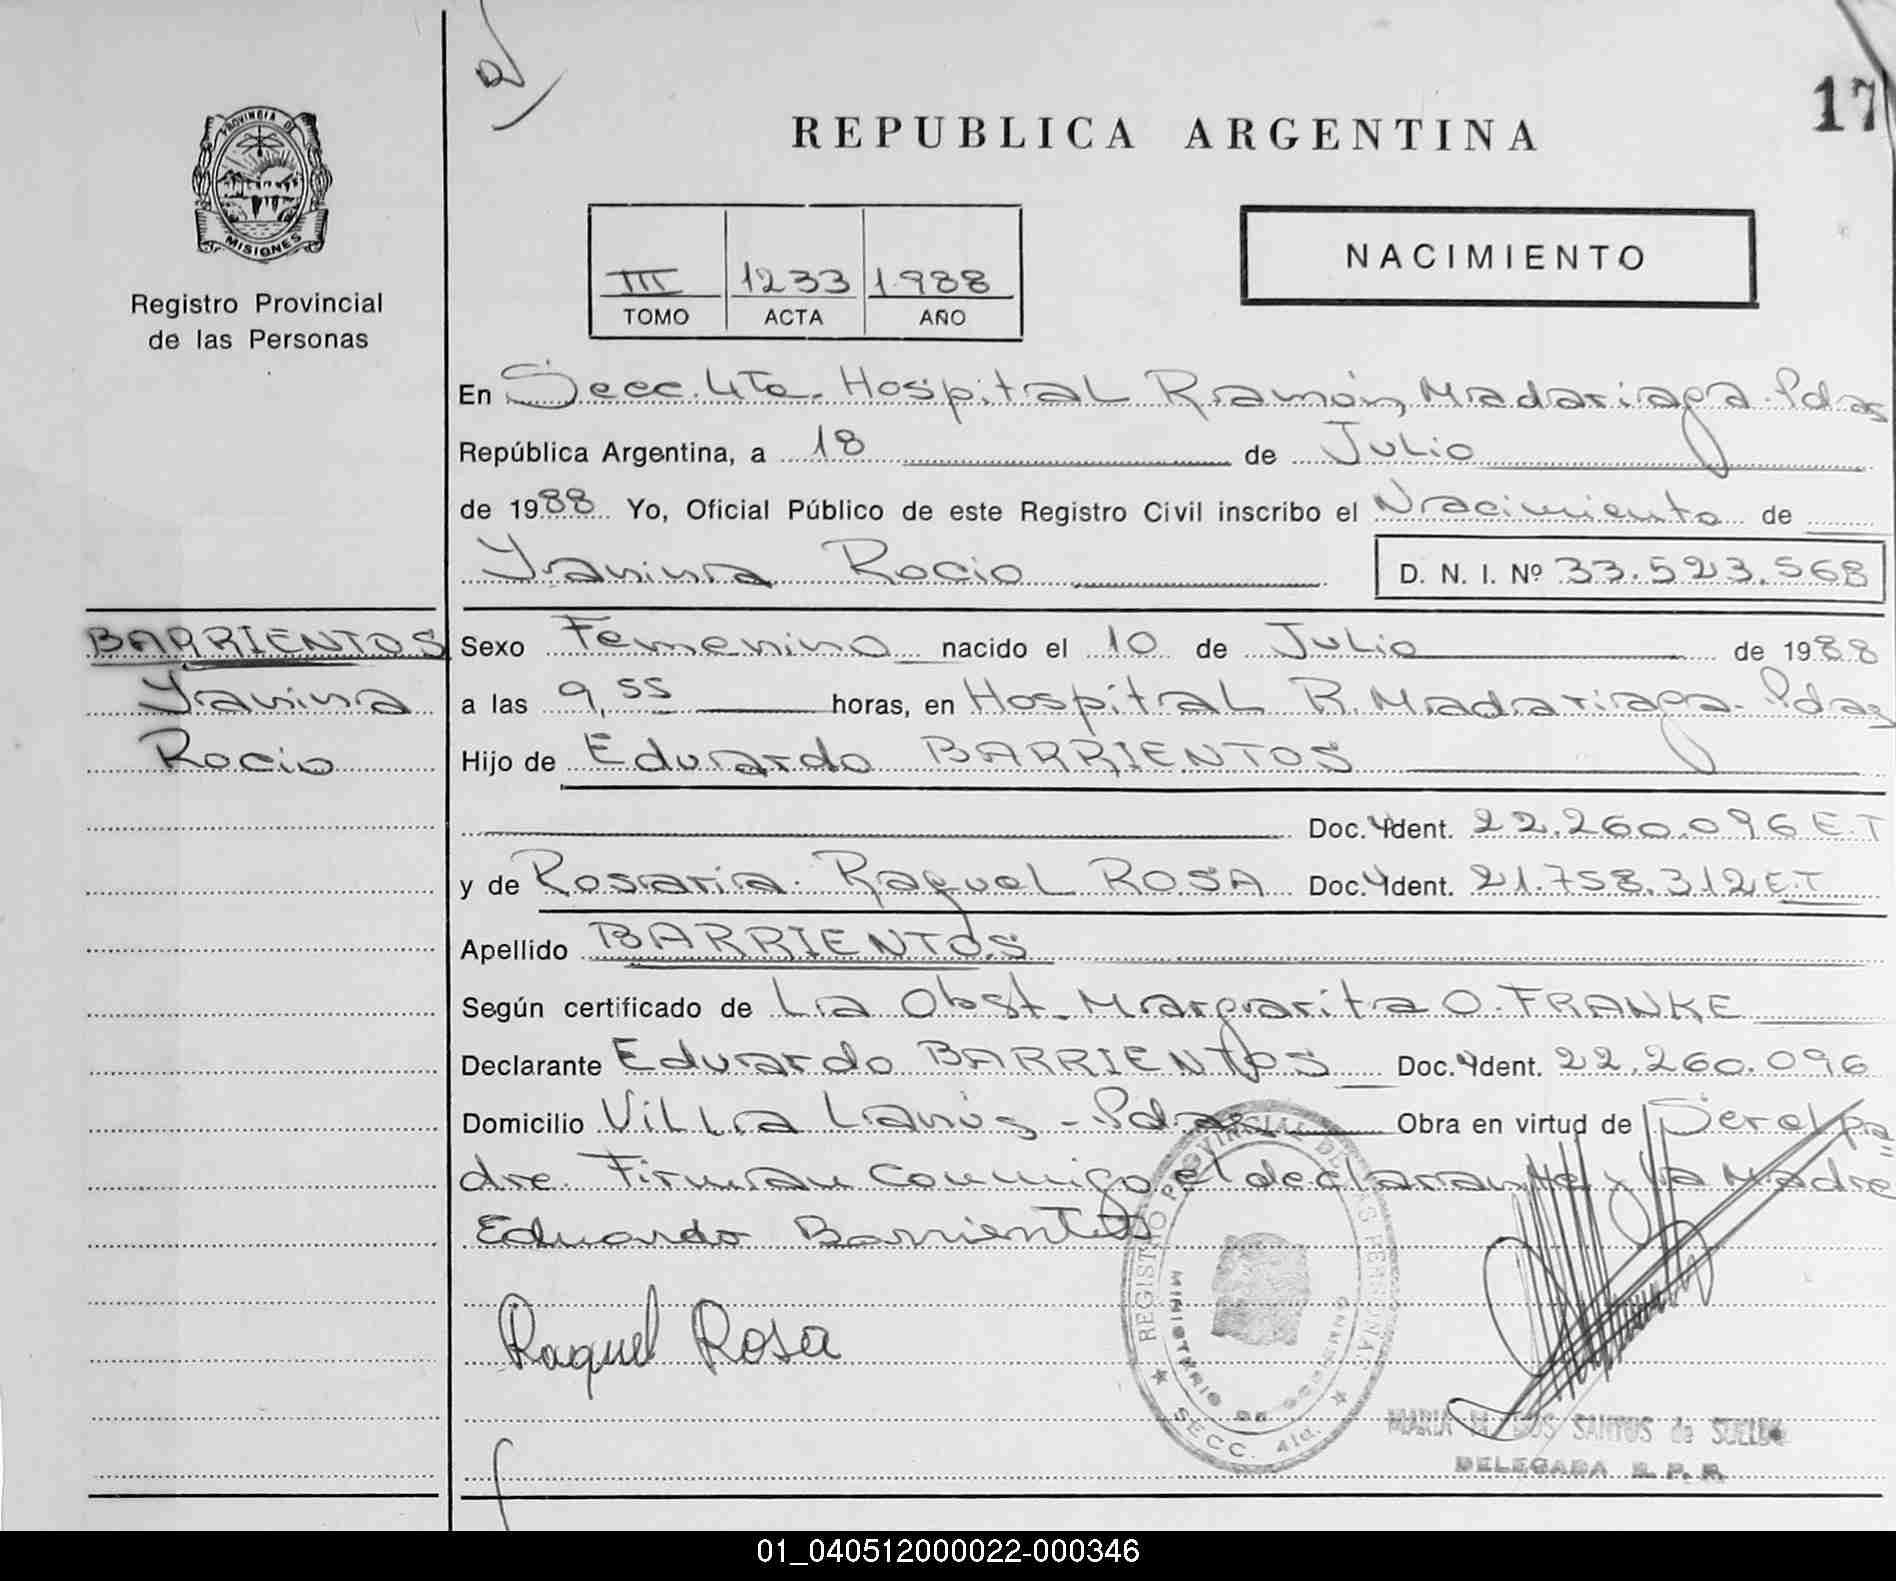 a)
17
PROVINCIA DE
MISIONES
Registro Provincial
de las Personas
REPUBLICA ARGENTINA
NACIMIENTO
III 1233 1.988
TOMO ACTA AÑO
En Secc. 4Ta. Hospital Ramón Madariaga. Pdas
República Argentina, a 18 de Julio
de 1988 Yo, Oficial Público de este Registro Civil inscribo el Nacimiento de
Yanina Rocio D. N. I. Nº 33.523.568
BARRIENTOS
Yanina
Rocio
Sexo Femenino nacido el 10 de Julio de 1988
a las 9,55 horas, en Hospital R. Madariaga. Pdas
Hijo de Eduardo BARRIENTOS
Doc. Ydent. 22.260.096 E.T
y de Rosaria Raquel ROSA Doc. Ydent. 21.758.312 E.T
Apellido BARRIENTOS
Según certificado de La Obst. Margarita O. FRANKE
Declarante Eduardo BARRIENTOS Doc. Ydent. 22.260.096
Domicilio Villa Lanús - Pdas Obra en virtud de Ser el pa=
dre. Firman Conmigo el declarante y la Madre
Eduardo Barrientos
Raquel Rosa
REGISTRO PROVINCIAL DE LAS PERSONAS
MINISTERIO DE GOBIERNO
SECC. 4ta.
MARIA H. DOS SANTOS de SUELDO
DELEGADA R. P. R.
01_040512000022-000346